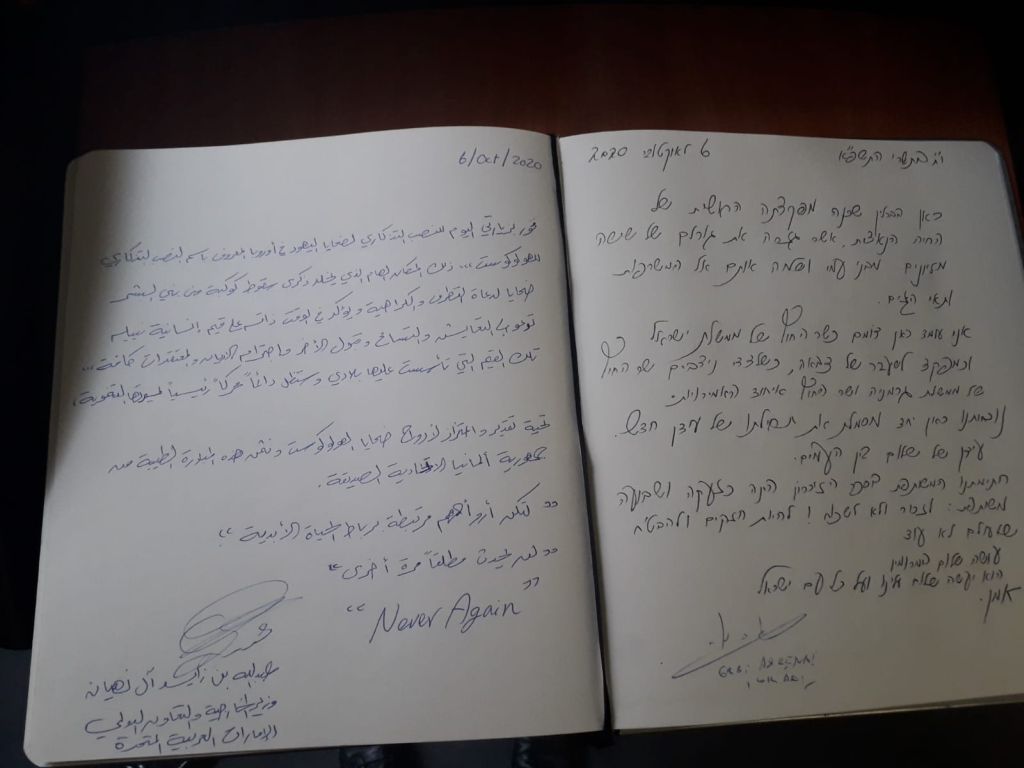 6/Oct/2020
فور زيارتي اليوم للنصب التذكاري لضحايا اليهود في أوروبا المعروف باسم النصب التذكاري
للهولوكوست... ذلك المكان الهام الذي يخلد ذكرى سقوط كوكبة من بني البشر
ضحايا لدعاة التطرف والكراهية ويؤكد في الوقت ذاته على قيم إنسانية نبيلة
التعايش والتسامح وقبول الآخر واحترام الأديان والمعتقدات كافة...
تلك القيم التي تأسست عليها بلادي وستظل دائماً محركاً رئيسياً لمسيرتها التنموية.
تحية تقدير واعتزاز لأرواح ضحايا الهولوكوست ونثمن هذه المبادرة الطيبة من
جمهورية ألمانيا الاتحادية الصديقة.
"لتكن أرواحهم مرتبطة برباط الحياة الأبدية"
"لن يحدث مطلقاً مرة أخرى"
"Never Again"
عبدالله بن زايد آل نهيان
وزير الخارجية والتعاون الدولي
الإمارات العربية المتحدة
י"ח בתשרי התשפ"א 6 לאוקטובר 2020
כאן בברלין שכנה מפקדתה הראשית של
החיה הנאצית, אשר גזרה את גורלם של שישה
מליונים מבני עמי ושלחה אותם אל המשרפות
ותאי הגזים.
אני עומד כאן היום כשר החוץ של ממשלת ישראל
וכמפקד לשעבר של צבאה, כשלצדי ניצבים שר החוץ
של ממשלת גרמניה ושר החוץ איחוד האמירויות.
נוכחותנו כאן יחד מסמלת את תחילתו של עידן חדש.
עידן של שלום בין העמים.
חתימתנו המשותפת בספר הזיכרון הינה כזעקה ושבועה
משותפת: לזכור ולא לשכוח! להיות חזקים ולהבטיח
שלעולם לא עוד
עושה שלום במרומיו
הוא יעשה שלום עלינו ועל כל עם ישראל
אמן.
גבי אשכנזי